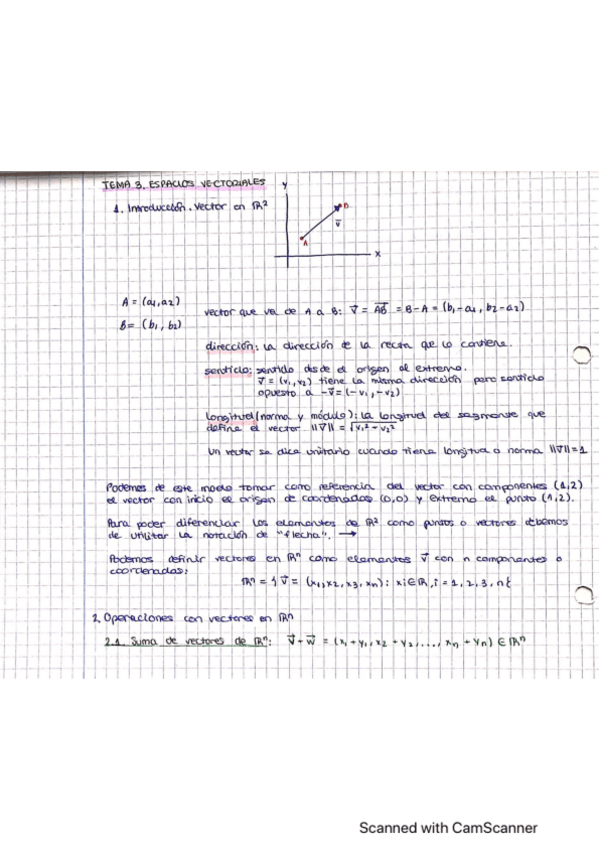 TEMA 3. ESPACIOS VECTORIALES
1. Introducción. Vector en ℝ²
Y
B
v⃗
A
X
A = (a₁, a₂)
B = (b₁, b₂)
vector que va de A a B: v⃗ = AB⃗ = B-A = (b₁-a₁, b₂-a₂)
dirección: La dirección de la recta que lo contiene.
sentido: sentido desde el origen al extremo.
v⃗ = (v₁, v₂) tiene la misma dirección pero sentido
opuesto a -v⃗ = (-v₁, -v₂)
Longitud (norma y módulo): La longitud del segmento que
define el vector ||v⃗|| = √v₁² + v₂²
Un vector se dice unitario cuando tiene longitud o norma ||v⃗|| = 1
Podemos de este modo tomar como referencia del vector con componentes (1,2)
el vector con inicio el origen de coordenadas (0,0) y extremo el punto (1,2).
Para poder diferenciar los elementos de ℝ² como puntos o vectores debemos
de utilizar la notación de "flecha". →
Podemos definir vectores en ℝⁿ como elementos v⃗ con n componentes o
coordenadas:
ℝⁿ = { v⃗ = (x₁, x₂, x₃, xₙ): xᵢ ∈ ℝ, i = 1, 2, 3, n }
2. Operaciones con vectores en ℝⁿ
2.1. Suma de vectores de ℝⁿ: v⃗ + w⃗ = (x₁ + y₁, x₂ + y₂, ..., xₙ + yₙ) ∈ ℝⁿ
Scanned with CamScanner